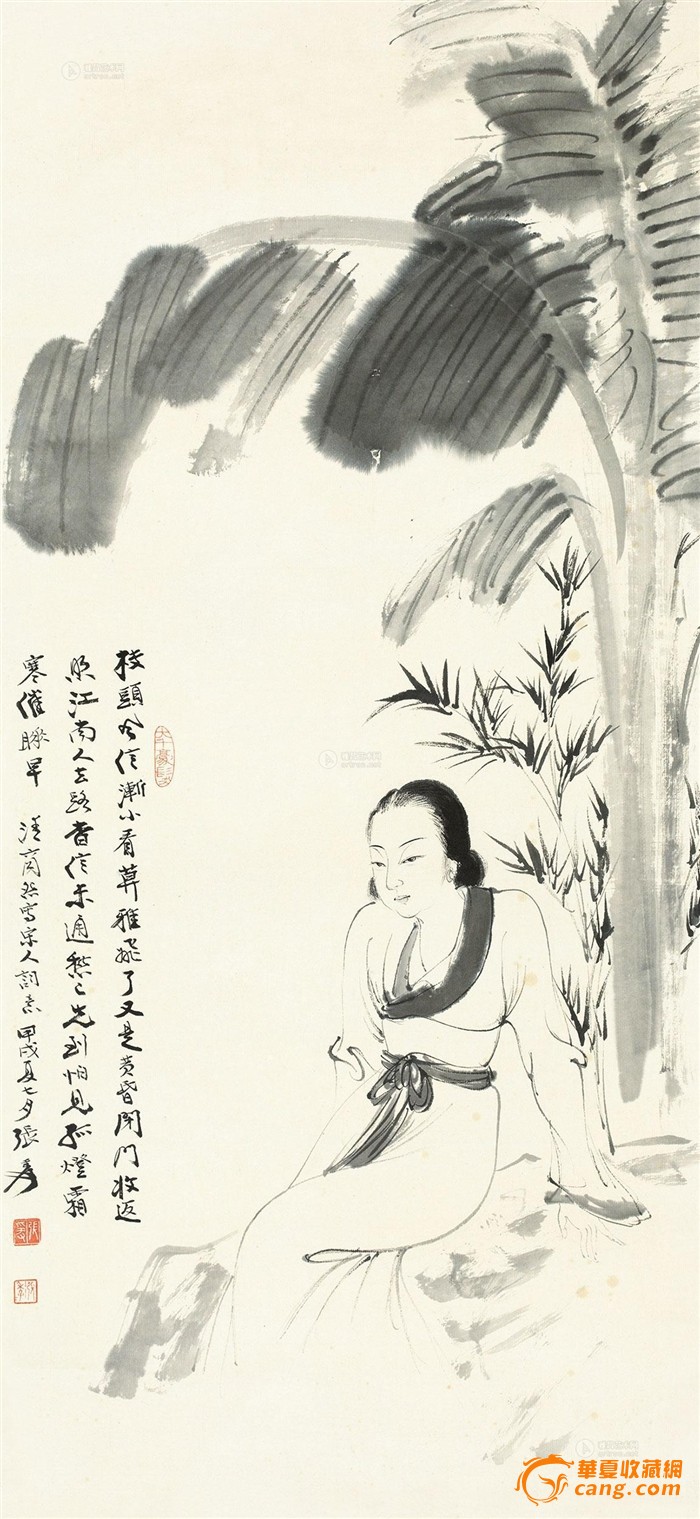 枝頭风信漸小看暮雅飛了又是黄昏閉門收返
照江南人去路音信未通愁〻先到怕見孤燈霜
寒催睡早 清商怨寫宋人詞意 甲戌夏七夕 張爰
張爰
華夏收藏網
cang.com
artron.net